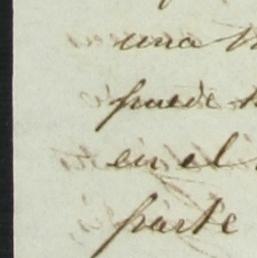 una
puede
en el
parte